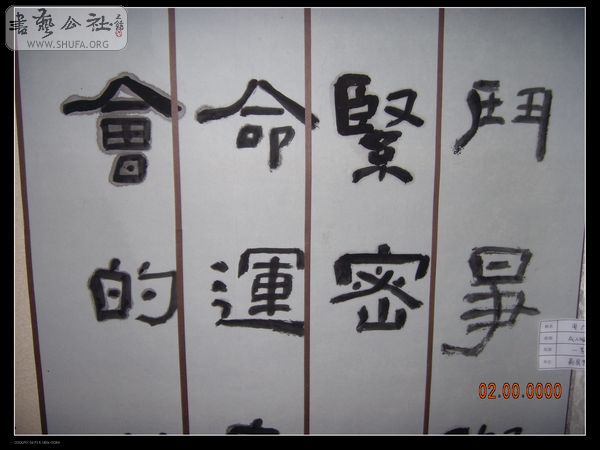 書藝公社
WWW.SHUFA.ORG
鬥爭
緊密
命運
會的
02.00.0000